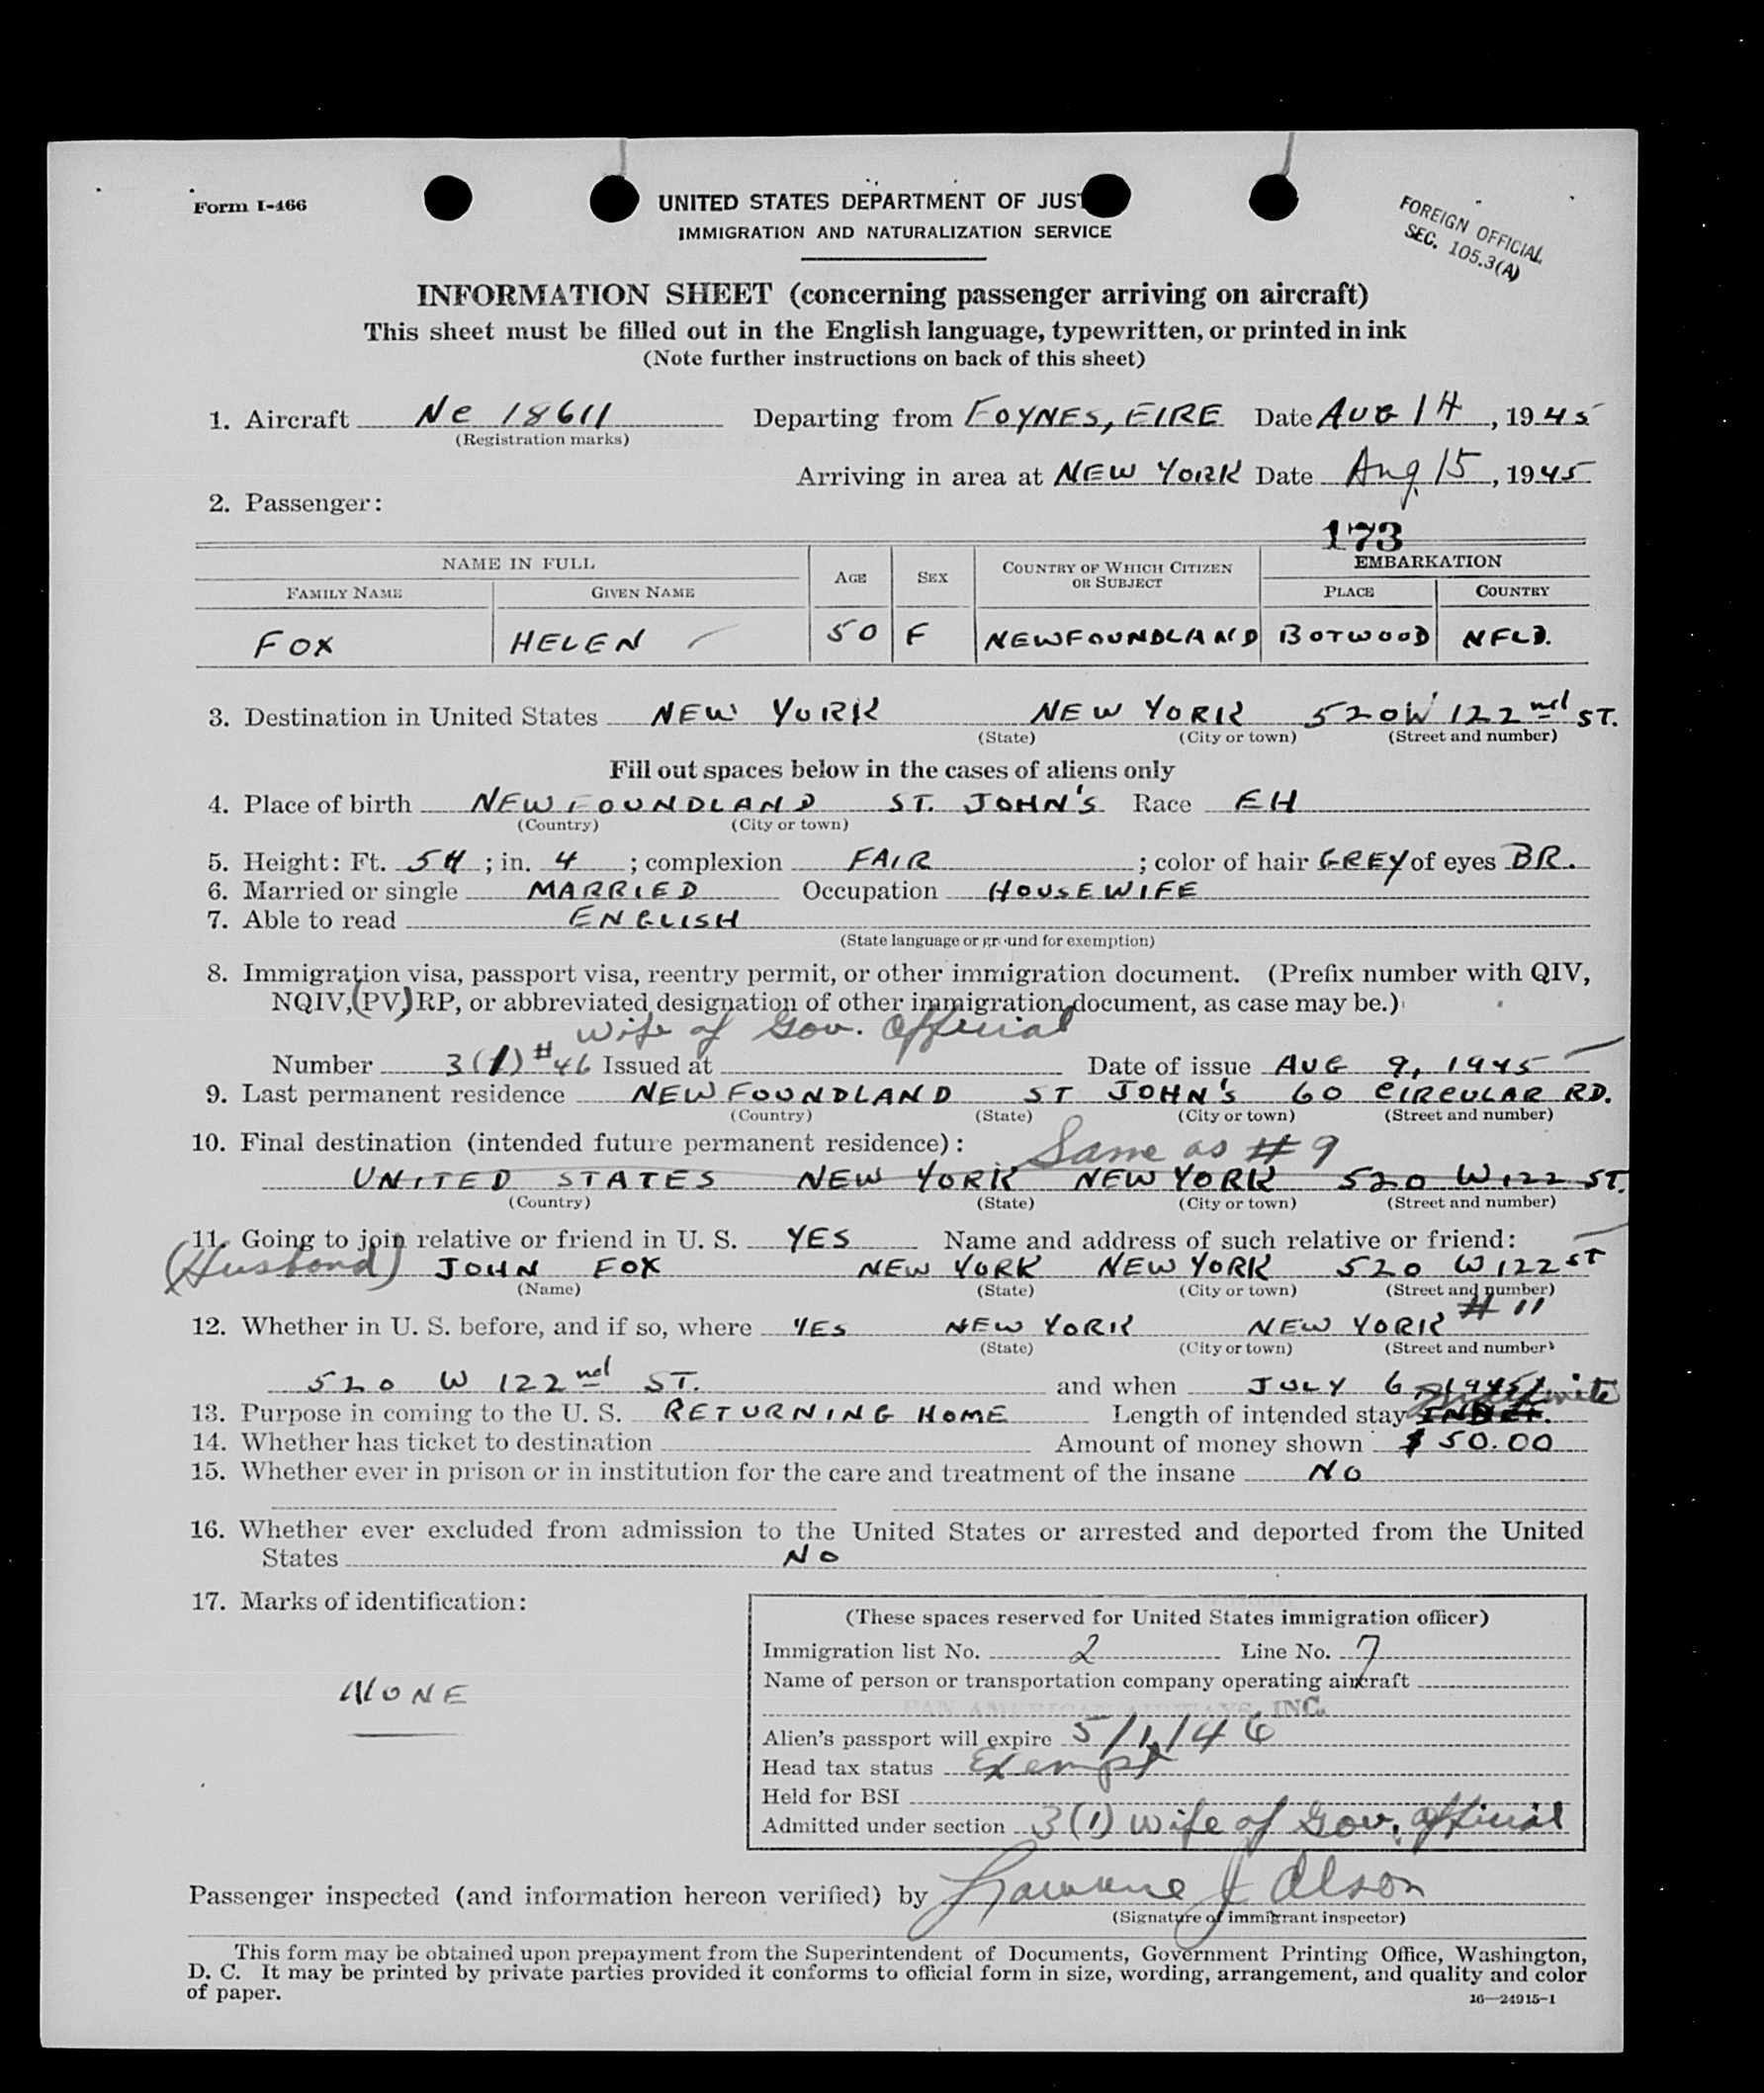 Form I-466
UNITED STATES DEPARTMENT OF JUST
IMMIGRATION AND NATURALIZATION SERVICE
FOREIGN OFFICIAL
SEC. 105.3(A)
INFORMATION SHEET (concerning passenger arriving on aircraft)
This sheet must be filled out in the English language, typewritten, or printed in ink
(Note further instructions on back of this sheet)
1. Aircraft Nc 18611 Departing from FOYNES, EIRE Date AUG 14, 1945
(Registration marks)
Arriving in area at NEW YORK Date Aug 15, 1945
2. Passenger:
173
NAME IN FULL AGE SEX COUNTRY OF WHICH CITIZEN OR SUBJECT EMBARKATION
FAMILY NAME GIVEN NAME PLACE COUNTRY
FOX HELEN 50 F NEWFOUNDLAND BOTWOOD NFLD.
3. Destination in United States NEW YORK NEW YORK 520 W 122nd ST.
(State) (City or town) (Street and number)
Fill out spaces below in the cases of aliens only
4. Place of birth NEWFOUNDLAND ST. JOHN'S Race EH
(Country) (City or town)
5. Height: Ft. 5 ; in. 4 ; complexion FAIR ; color of hair GREY of eyes BR.
6. Married or single MARRIED Occupation HOUSEWIFE
7. Able to read ENGLISH
(State language or ground for exemption)
8. Immigration visa, passport visa, reentry permit, or other immigration document. (Prefix number with QIV,
NQIV, (PV,) RP, or abbreviated designation of other immigration document, as case may be.)
Wife of Gov. Official
Number 3(1) #46 Issued at Date of issue AUG 9, 1945
9. Last permanent residence NEWFOUNDLAND ST JOHN'S 60 CIRCULAR RD.
(Country) (State) (City or town) (Street and number)
10. Final destination (intended future permanent residence): Same as #9
UNITED STATES NEW YORK NEW YORK 520 W 122 ST.
(Country) (State) (City or town) (Street and number)
11. Going to join relative or friend in U. S. YES Name and address of such relative or friend:
(Husband) JOHN FOX NEW YORK NEW YORK 520 W 122 ST
(Name) (State) (City or town) (Street and number)
12. Whether in U. S. before, and if so, where YES NEW YORK NEW YORK # 11
(State) (City or town) (Street and number)
520 W 122nd ST. and when JULY 6, 1945
13. Purpose in coming to the U. S. RETURNING HOME Length of intended stay INDEF. Indefinite
14. Whether has ticket to destination Amount of money shown $50.00
15. Whether ever in prison or in institution for the care and treatment of the insane NO
16. Whether ever excluded from admission to the United States or arrested and deported from the United
States NO
17. Marks of identification:
NONE
(These spaces reserved for United States immigration officer)
Immigration list No. 2 Line No. 7
Name of person or transportation company operating aircraft
PAN AMERICAN AIRWAYS, INC.
Alien's passport will expire 5/1/46
Head tax status Exempt
Held for BSI
Admitted under section 3(1) Wife of Gov. Official
Passenger inspected (and information hereon verified) by J Olson
(Signature of immigrant inspector)
This form may be obtained upon prepayment from the Superintendent of Documents, Government Printing Office, Washington,
D. C. It may be printed by private parties provided it conforms to official form in size, wording, arrangement, and quality and color
of paper.
16—24915-1